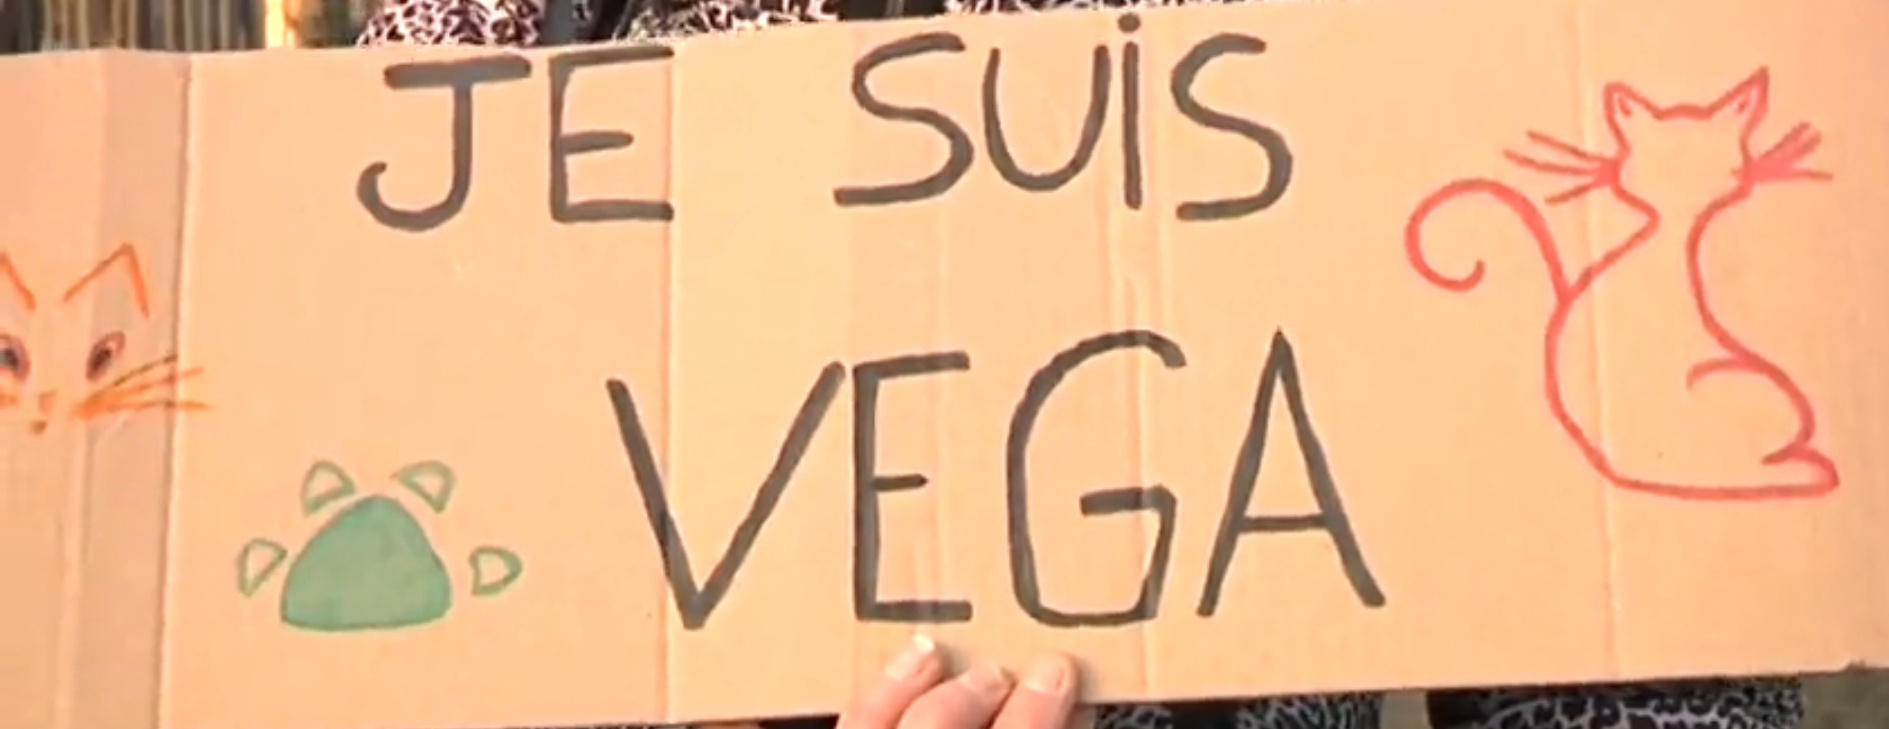 JE SUiS
VEGA